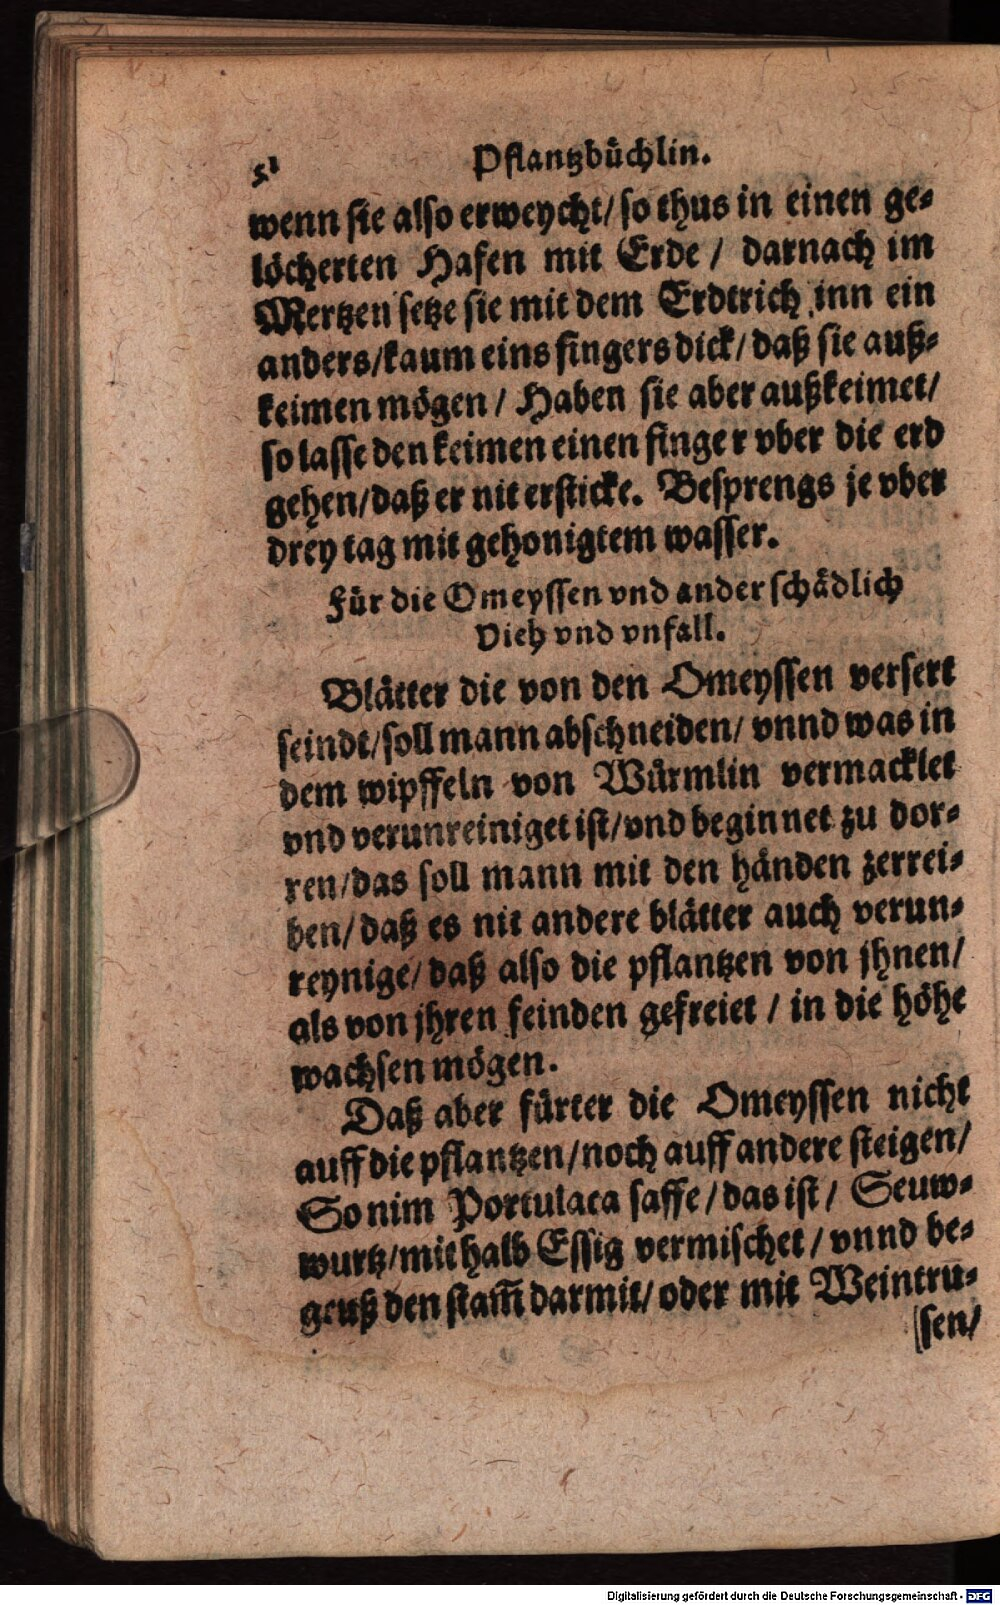 51 Pflantzbüchlin.
wenn sie also erweycht/ so thus in einen ge-
löcherten Hafen mit Erde / darnach im
Mertzen setze sie mit dem Erdtrich inn ein
anders/kaum eins fingers dick/ daß sie auß-
keimen mögen / Haben sie aber außkeimet/
so lasse den keimen einen finger vber die erd
gehen/daß er nit ersticke. Besprengs je vber
drey tag mit gehonigtem wasser.
Für die Omeyssen vnd ander schädlich
Vieh vnd vnfall.
Blätter die von den Omeyssen versert
seindt/soll mann abschneiden/ vnnd was in
dem wipffeln von Würmlin vermacklet
vnd verunreiniget ist/vnd beginnet zu dor-
ren/das soll mann mit den händen zerrei-
ben/ daß es nit andere blätter auch verun-
reynige/ daß also die pflantzen von jhnen/
als von jhren feinden gefreiet / in die höhe
wachsen mögen.
Daß aber fürter die Omeyssen nicht
auff die pflantzen/noch auff andere steigen/
So nim Portulaca saffe/das ist/ Seuw-
wurtz/mit halb Essig vermischet/ vnnd be-
geuß den stam̃ darmit/ oder mit Weintru-
sen/
Digitalisierung gefördert durch die Deutsche Forschungsgemeinschaft - DFG